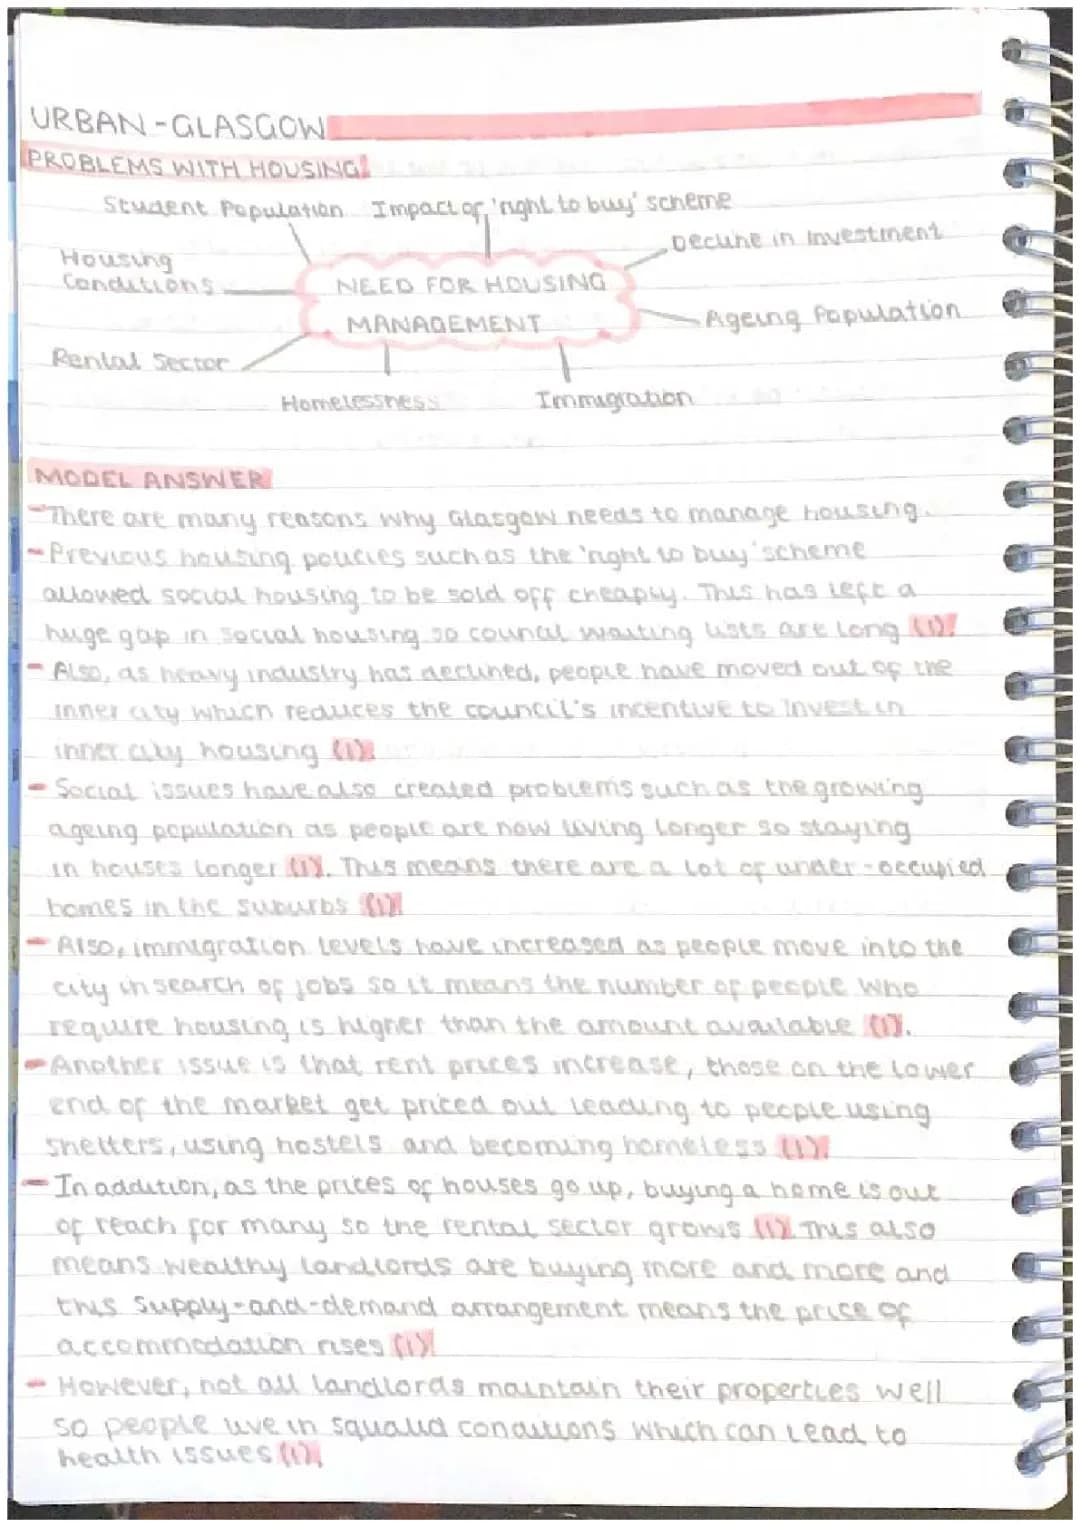 URBAN-GLASGOW
PROBLEMS WITH HOUSING:
Student Population Impact of 'right to buy' scheme
Decline in Investment
Housing
Conditions
NEED FOR HOUSING
MANAGEMENT
Ageing Population
Rental Sector
Homelessness
Immigration
MODEL ANSWER
-There are many reasons why Glasgow needs to manage housing.
-Previous housing policies such as the 'right to buy' scheme
allowed social housing to be sold off cheaply. This has left a
huge gap in social housing so council waiting lists are long (1).
- Also, as heavy industry has declined, people have moved out of the
inner city which reduces the council's incentive to invest in
inner city housing (1).
- Social issues have also created problems such as the growing
ageing population as people are now living longer so staying
in houses longer (1). This means there are a lot of under-occupied
homes in the suburbs (1).
- Also, immigration levels have increased as people move into the
city in search of jobs so it means the number of people who
require housing is higher than the amount available (1).
-Another issue is that rent prices increase, those on the lower
end of the market get priced out leading to people using
shelters, using hostels and becoming homeless (1).
-In addition, as the prices of houses go up, buying a home is out
of reach for many so the rental sector grows (1). This also
means wealthy landlords are buying more and more and
this supply-and-demand arrangement means the price of
accommodation rises (1).
- However, not all landlords maintain their properties well
so people live in squalid conditions which can lead to
health issues (1).